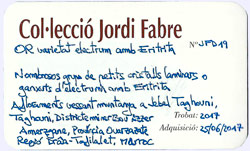 Col·lecció Jordi Fabre
OR varietat electrum amb Eritrita Nº JFD19
Nombrosos grups de petits cristalls laminars o
ganxuts d'electrum, amb Eritrita
Afloraments vessant muntanya a Jebel Taghouni,
Taghouni, Districte miner Bou Azzer Trobat: 2017
Amerzgane, Província Ouarzazate Adquisició: 25/06/2017
Regió Drâa-Tafilalet, MARROC